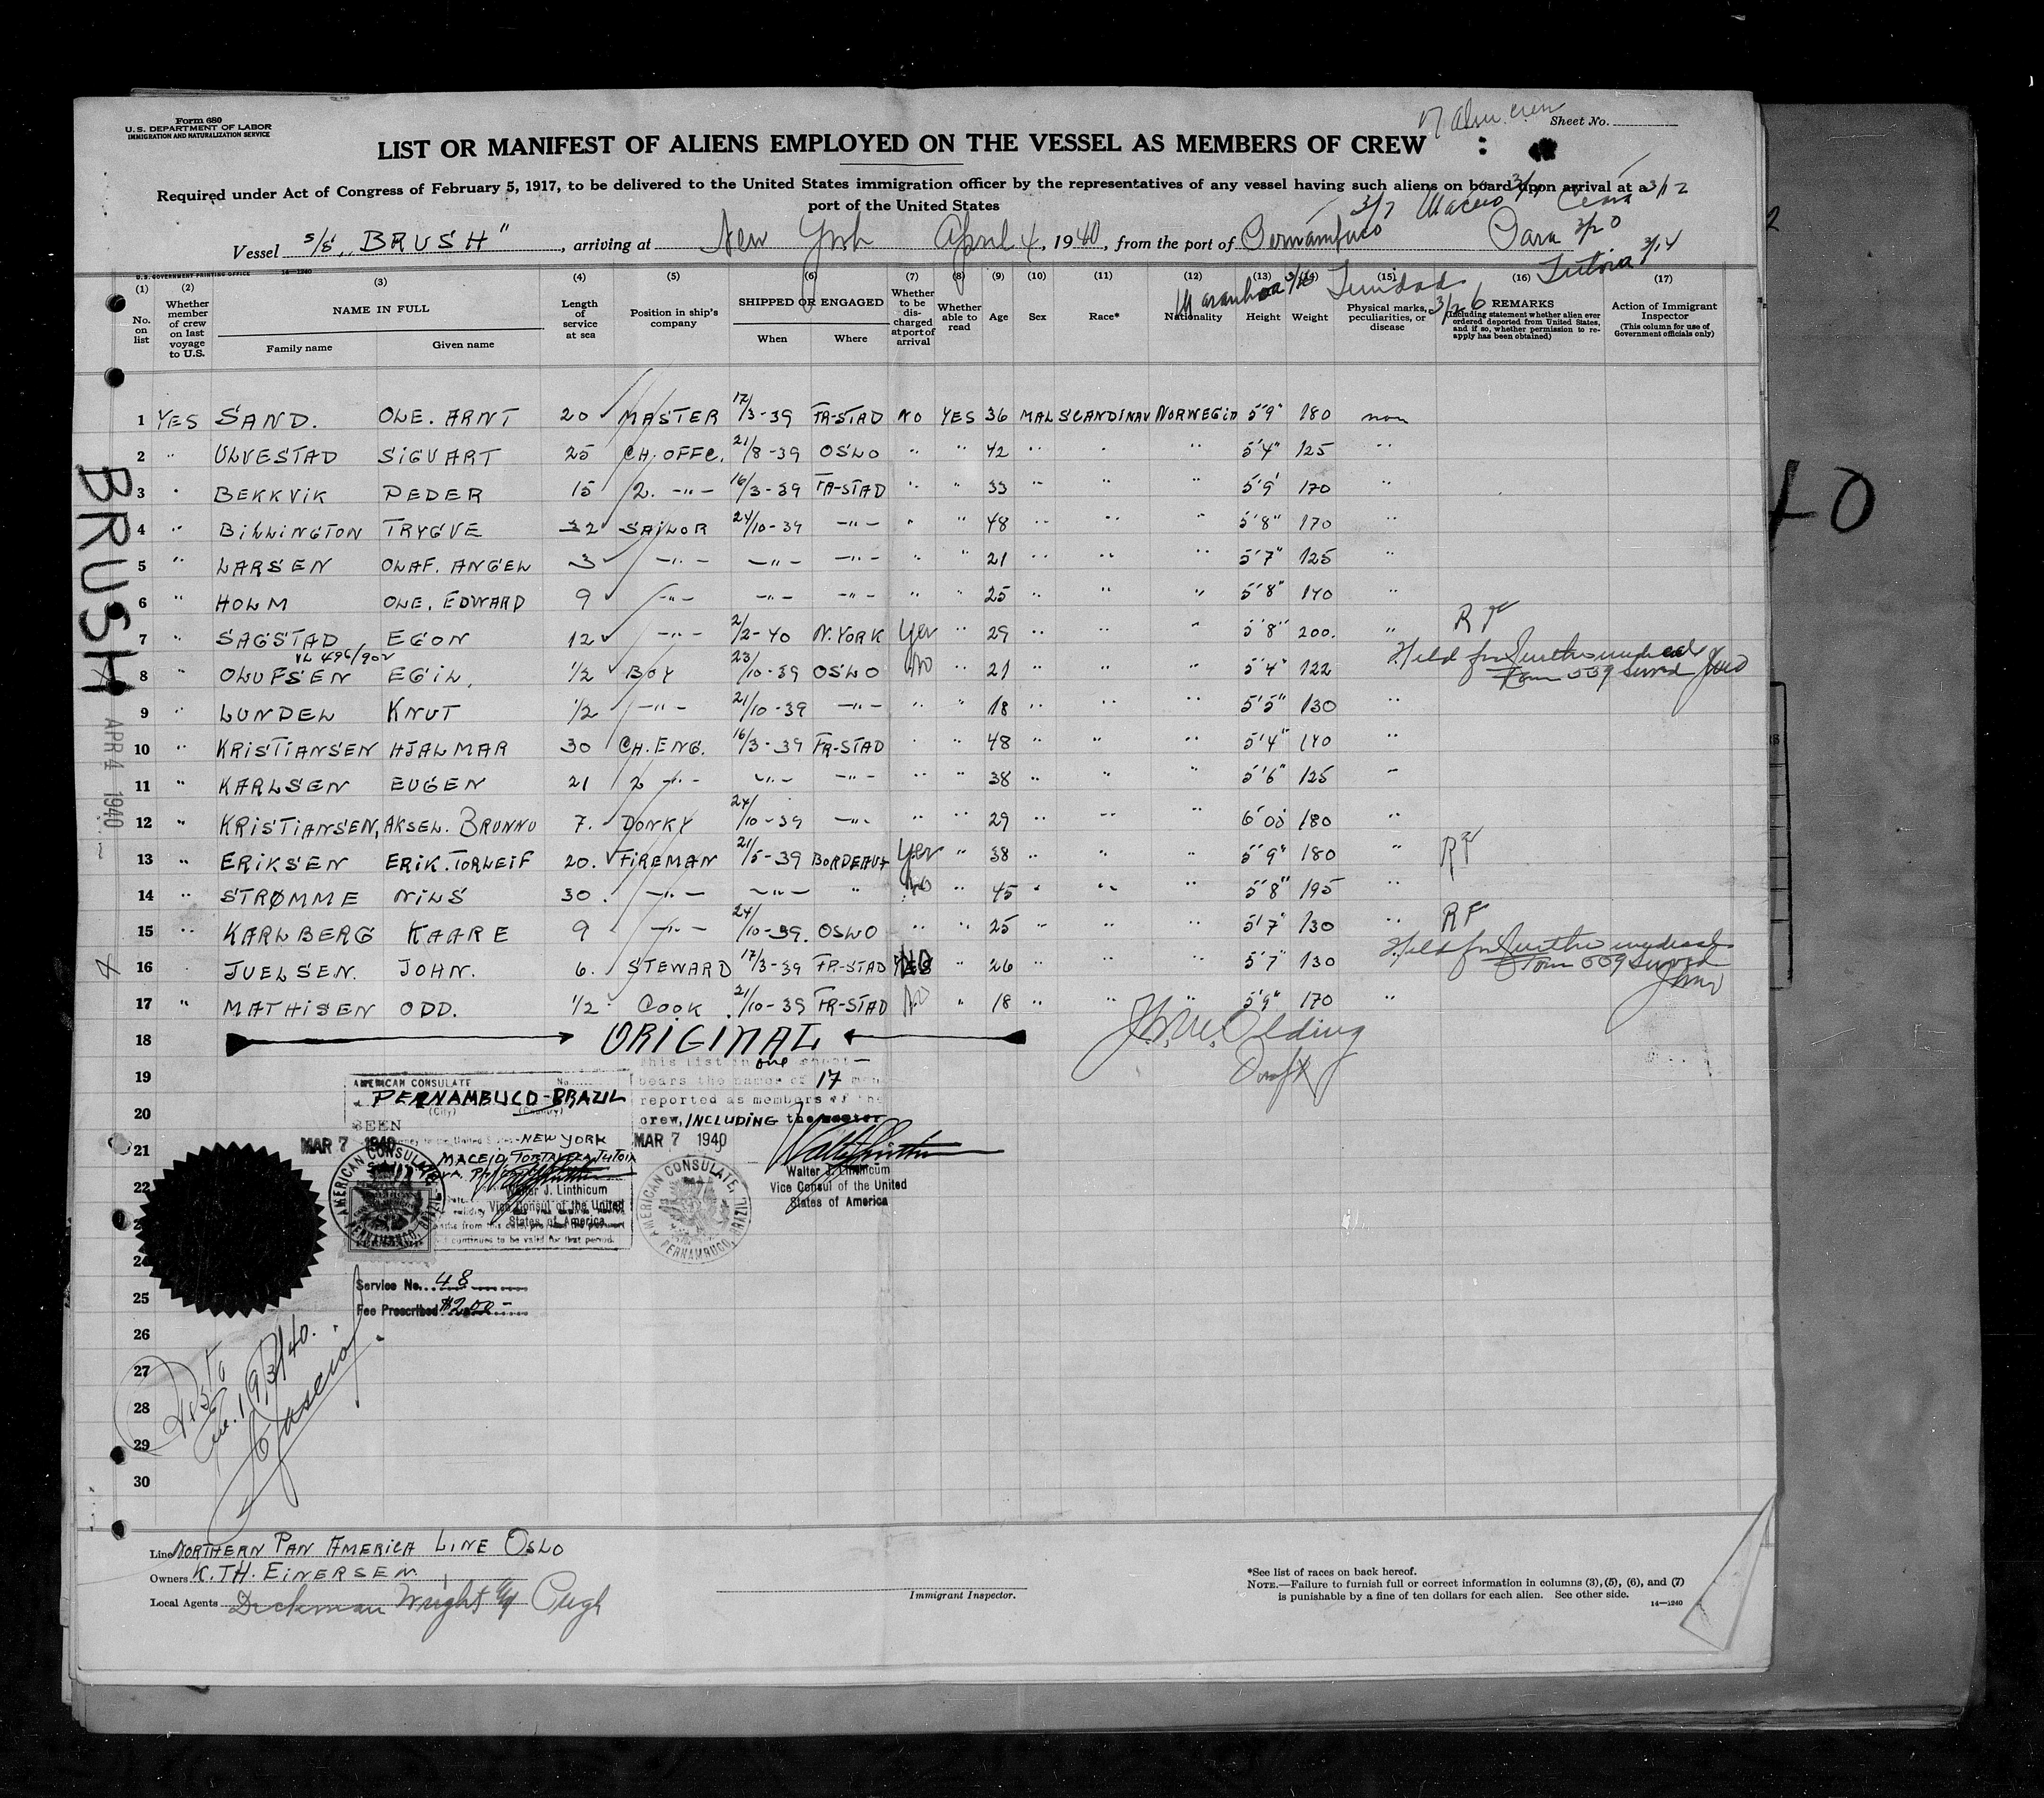 Form 680
U.S. DEPARTMENT OF LABOR
IMMIGRATION AND NATURALIZATION SERVICE
Sheet No.
LIST OR MANIFEST OF ALIENS EMPLOYED ON THE VESSEL AS MEMBERS OF CREW
Required under Act of Congress of February 5, 1917, to be delivered to the United States immigration officer by the representatives of any vessel having such aliens on board upon arrival at a
port of the United States
3/7 Maceio Ceara 3/12
Vessel S/S „BRUSH", arriving at New York April 4, 1940, from the port of Pernambuco Para 3/20
Tutoia 3/14
Trinidad 3/26
U.S. GOVERNMENT PRINTING OFFICE 14—1240
(1) (2) (3) (4) (5) (6) (7) (8) (9) (10) (11) (12) (13) (14) (15) (16) (17)
No. on list
Whether member of crew on last voyage to U.S.
NAME IN FULL
Family name Given name
Length of service at sea
Position in ship's company
SHIPPED OR ENGAGED
When Where
Whether to be discharged at port of arrival
Whether able to read
Age
Sex
Race*
Nationality
Height
Weight
Physical marks, peculiarities, or disease
REMARKS
(Including statement whether alien ever ordered deported from United States, and if so, whether permission to reapply has been obtained)
Action of Immigrant Inspector
(This column for use of Government officials only)
1 YES SAND. OLE. ARNT 20 MASTER 17/3-39 FR-STAD NO YES 36 MAL SCANDINAV NORWEGIA 5'9" 180 non
2 " ULVESTAD SIGVART 25 CH. OFFC. 21/8-39 OSLO " " 42 " " " 5'4" 125 "
3 " BEKKVIK PEDER 15 2. -"- 16/3-39 FR-STAD " " 33 " " " 5'9' 170 "
4 " BILLINGTON TRYGVE 32 SAILOR 24/10-39 -"- " " 48 " " " 5'8" 170 "
5 " LARSEN OLAF. ANGEL 3 -"- -"- -"- " " 21 " " " 5'7" 125 "
6 " HOLM OLE. EDWARD 9 -"- -"- -"- " " 25 " " " 5'8" 140 "
7 " SAGSTAD EGON 12 -"- 2/2-40 N. YORK Yes " 29 " " " 5'8" 200. " RF
VL 496/902
8 " OLUFSEN EGIL, 1/2 BOY 23/10-39 OSLO No " 21 " " " 5'4" 122 Held for further medical
Form 559 served
9 " LUNDEL KNUT 1/2 -"- 21/10-39 -"- " " 18 " " " 5'5" 130 "
10 " KRISTIANSEN HJALMAR 30 CH. ENG. 16/3-39 FR-STAD " " 48 " " " 5'4" 140 "
11 " KARLSEN EUGEN 21 2 -"- -"- -"- " " 38 " " " 5'6" 125 "
12 " KRISTIANSEN, AKSEL. BRUNNO 7. DONKY 24/10-39 -"- " " 29 " " 6'00 180 "
13 " ERIKSEN ERIK. TORLEIF 20. FIREMAN 21/5-39 BORDEAUX Yes " 38 " " " 5'9" 180 " RF
14 " STRØMME NILS 30. -"- -"- " No " 45 " " " 5'8" 195 "
15 " KARLBERG KAARE 9 -"- 24/10-39. OSLO " " 25 " " " 5'7" 130 " RF
16 JUELSEN. JOHN. 6. STEWARD 17/3-39 FR-STAD NO " 26 " " " 5'7" 130 Held for further medical
Form 559 served
17 " MATHISEN ODD. 1/2 COOK 21/10-39 FR-STAD No " 18 " " " 5'9" 170 "
18 ORIGINAL
19
20
21
22
23
24
25
26
27
28
29
30
BRUSH
APR 4 1940
This list in one sheet
bears the names of 17 men
reported as members of the
crew, INCLUDING the master
MAR 7 1940
AMERICAN CONSULATE, PERNAMBUCO, BRAZIL
Walter J. Linthicum
Vice Consul of the United
States of America
AMERICAN CONSULATE No.
PERNAMBUCO-BRAZIL
(City) (Country)
SEEN
MAR 7 1940
NEW YORK
MACEIO, FORTALEZA, TUTOIA
Walter J. Linthicum
Vice Consul of the United
States of America
continues to be valid for that period.
AMERICAN CONSULATE, PERNAMBUCO, BRAZIL
Service No. 48
Fee Prescribed $2.00
Line NORTHERN PAN AMERICA LINE OSLO
Owners K. TH. EINERSEN
Local Agents Dickman Wright & Pugh
Immigrant Inspector.
*See list of races on back hereof.
NOTE.—Failure to furnish full or correct information in columns (3), (5), (6), and (7)
is punishable by a fine of ten dollars for each alien. See other side.
14—1240